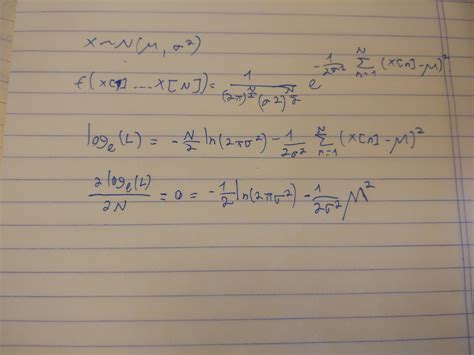 X ~ N(μ, σ²)
f(X[1] ... X[N]) = 1/((2π)^(N/2) (σ2)^(N/2)) e^(-1/(2σ²) Σ_{n=1}^{N} (X[n]-μ)²)
log_e(L) = -N/2 ln(2πσ²) - 1/(2σ²) Σ_{n=1}^{N} (X[n]-μ)²
2log_e(L)/2N = 0 = -1/2 ln(2πσ²) - 1/(2σ²) μ²